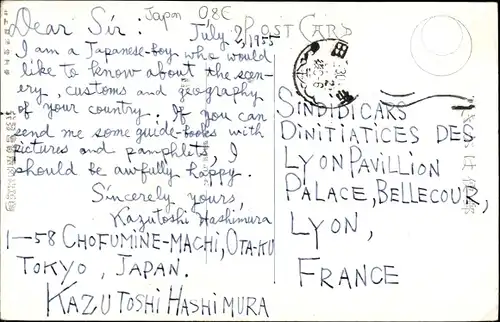 Japon 08E
POST CARD
Dear Sir: July 2, 1955
I am a Japanese-boy who would
like to know about the scen-
ery, customs and geography
of your country. If you can
send me some guide-books with
pictures and pamphlets, I
should be awfully happy.
Sincerely yours,
Kazutoshi Hashimura
1-58 CHOFUMINE-MACHI, OTA-KU
TOKYO, JAPAN.
KAZUTOSHI HASHIMURA
SINDIDICARS
DINITIATICES DES
LYON PAVILLION
PALACE, BELLECOUR,
LYON,
FRANCE